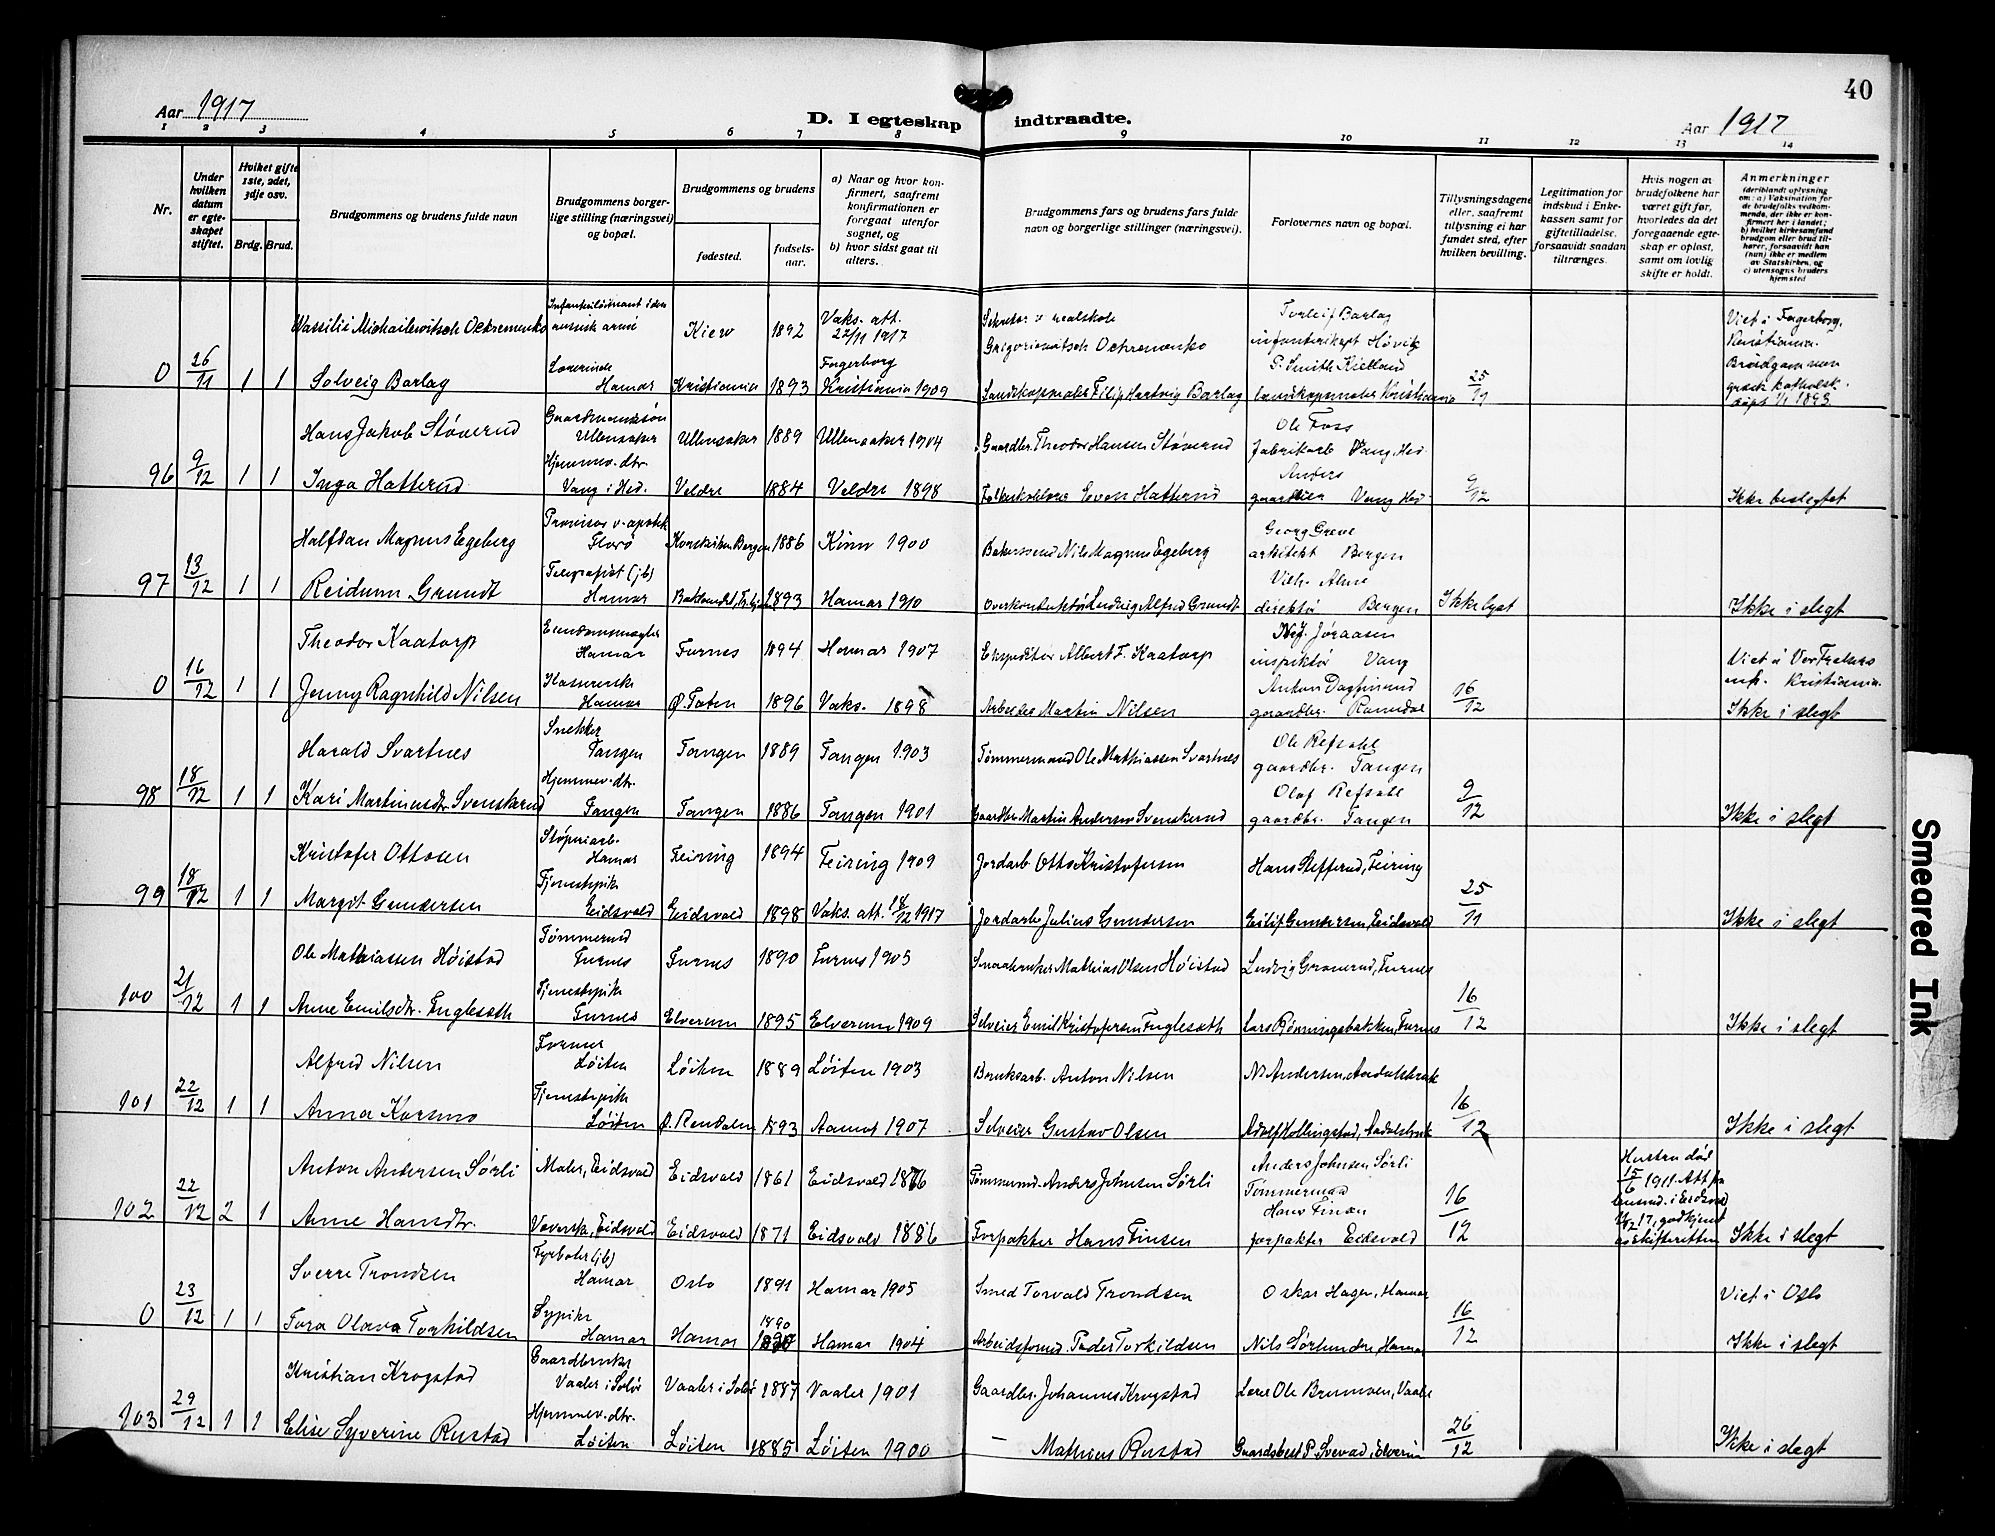 40
Aar 1917
D. I egteskap indtraadte.
Aar 1917
1 2 3 4 5 6 7 8 9 10 11 12 13 14
Nr.
Under hvilken datum er egteskapet stiftet.
Hvilket gifte 1ste, 2det, 3dje osv.
Brdg. Brud.
Brudgommens og brudens fulde navn
Brudgommens borgerlige stilling (næringsvei) og bopæl.
Brudgommens og brudens
fødested.
fødselsaar.
a) Naar og hvor konfirmert, saafremt konfirmationen er foregaat utenfor sognet, og
b) hvor sidst gaat til alters.
Brudgommens fars og brudens fars fulde navn og borgerlige stillinger (næringsvei).
Forlovernes navn og bopæl.
Tillysningsdagene eller, saafremt tillysning ei har fundet sted, efter hvilken bevilling.
Legitimation for indskud i Enkekassen samt for giftetilladelse, forsaavidt saadan tiltrænges.
Hvis nogen av brudefolkene har været gift før, hvorledes da det foregaaende egteskap er opløst, samt om lovlig skifte er holdt.
Anmerkninger (deriblandt oplysning om: a) Vaksination for de brudefolks vedkommende, der ikke er konfirmert her i landet; b) hvilket kirkesamfund brudgom eller brud tilhører, forsaavidt han (hun) ikke er medlem av Statskirken, og c) utensogns bruders hjemsted
Wassilii Michailewitsch Ochremenko Kiew 1892 Vaks. att. 22/11 1917 Sekretær v. realskole Grigoriewitsch Ochremenko Torleif Barlag Høvik Viet i Fagerborg, Kristiania. Brudgommen græsk katholsk. døpt 1/1 1893.
0 26/11 1 1 Solveig Barlag Lærerinde Hamar Kristiania 1893 Fagerborg Kristiania 1909 Landskapsmaler Filip Hartvig Barlag S. Smith Kielland landskapsmaler Kristiania 25/11
Hans Jakob Støverud Gaardmandssøn Ullensaker Ullensaker 1889 Ullensaker 1904 Gaardbr. Theodor Hansen Støverud Ole Foss fabrikarb. Vang, Hed.
96 9/12 1 1 Inga Hatterud Hjemmev. dtr. Vang i Hed. Veldre 1884 Veldre 1898 Even Hatterud Anders Vang Hed. 9/12 Ikke beslegtet
Halfdan Magnus Egeberg Provisor v. apotek Florø Bergen 1886 Kinn 1900 Nils Magnus Egeberg Georg Greve arkitekt Bergen
97 13/12 1 1 Reidunn Grundt Telegrafist (jb) Hamar 1893 Hamar 1910 Overkonduktør Ludvig Alfred Grundt Vilh. direktør Bergen Ikke lyst Ikke i slegt
Theodor Kaatorp Eiendomsmægler Hamar Furnes 1894 Hamar 1907 Ekspeditør Albert F. Kaatorp Jøraasen inspektør Vang Viet i Vor Frelsers mh. Kristiania.
0 16/12 1 1 Jenny Ragnhild Nilsen Kassererske Hamar Ø. Toten 1896 Vaks. 1898 Arbeider Martin Nilsen Anton Dagfinrud gaardbr. Romedal 16/12 Ikke i slegt
Harald Svartnes Snekker Tangen Tangen 1889 Tangen 1903 Tømmermand Ole Mathiassen Svartnes Ole Refsahl gaardbr. Tangen
98 18/12 1 1 Kari Martinusdtr. Svenskerud Hjemmev. dtr. Tangen Tangen 1886 Tangen 1901 Gaardbr. Martin Andersen Svenskerud Olaf Refsahl gaardbr. Tangen 9/12 Ikke i slegt
Kristofer Ottosen Støperiarb. Hamar Feiring 1894 Feiring 1909 Jordarb. Otto Kristofersen Hans Steffrud, Feiring
99 18/12 1 1 Margit Gundersen Tjenestepike Eidsvold Eidsvold 1898 Vaks. att. 18/12 1917 Jordarb. Julius Gundersen Eilif Gundersen, Eidsvold 25/11 Ikke i slegt
Ole Mathiassen Høistad Tømmermd Furnes Furnes 1890 Furnes 1905 Smaabruker Mathias Olsen Høistad Ludvig Granerud, Furnes
100 21/12 1 1 Anne Emilsdtr. Fuglesæth Tjenestepike Furnes Elverum 1895 Elverum 1909 Selveier Emil Kristofersen Fuglesæth Lars Rønningsbakken, Furnes 16/12 Ikke i slegt
Alfred Nilsen Former Løiten Løiten 1889 Løiten 1903 Bruksarb. Anton Nilsen N. Andersen, Aadalsbruk
101 22/12 1 1 Anna Korsmo Tjenestepike Løiten Ø. Rendalen 1893 Aamot 1907 Selveier Gustav Olsen Adolf Hollingstad, Aadalsbruk 16/12 Ikke i slegt
Anton Andersen Sørli Maler, Eidsvold Eidsvold 1861 Eidsvold 1876 Tømmermd. Anders Johnsen Sørli Anders Johnsen Sørli Tømmermand Hustru død 15/6 1911. Att. fra lensmd. i Eidsvold 17, godkjent av skifteretten
102 22/12 2 1 Anne Hansdtr. Væverske, Eidsvold Eidsvold 1871 Eidsvold 1886 Forpakter Hans Finsen Hans Finsen forpakter Eidsvold 16/12 Ikke i slegt
Sverre Trondsen Fyrbøter (jb) Hamar Oslo 1891 Hamar 1905 Smed Torvald Trondsen Oskar Hagen, Hamar Viet i Oslo
0 23/12 1 1 Tora Olava Torkildsen Sypike Hamar Hamar 1890 Hamar 1904 Arbeidsformd. Peder Torkildsen Nils Sørlundre, Hamar 16/12 Ikke i slegt
Kristian Krogstad Gaardbruker Vaaler i Solør Vaaler i Solør 1887 Vaaler 1901 Gaardbr. Johannes Krogstad Lærer Ole Brunmoen, Vaaler
103 29/12 1 1 Elise Syverine Rustad Hjemmev. dtr. Løiten Løiten 1885 Løiten 1900 — Mathias Rustad Gaardsbest. P. Svevad, Elverum 26/12 Ikke i slegt
Smeared Ink